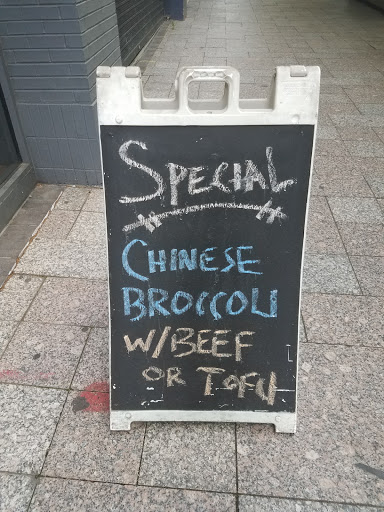 SPECIAL
CHINESE
BROCCOLI
W/BEEF
OR TOFU